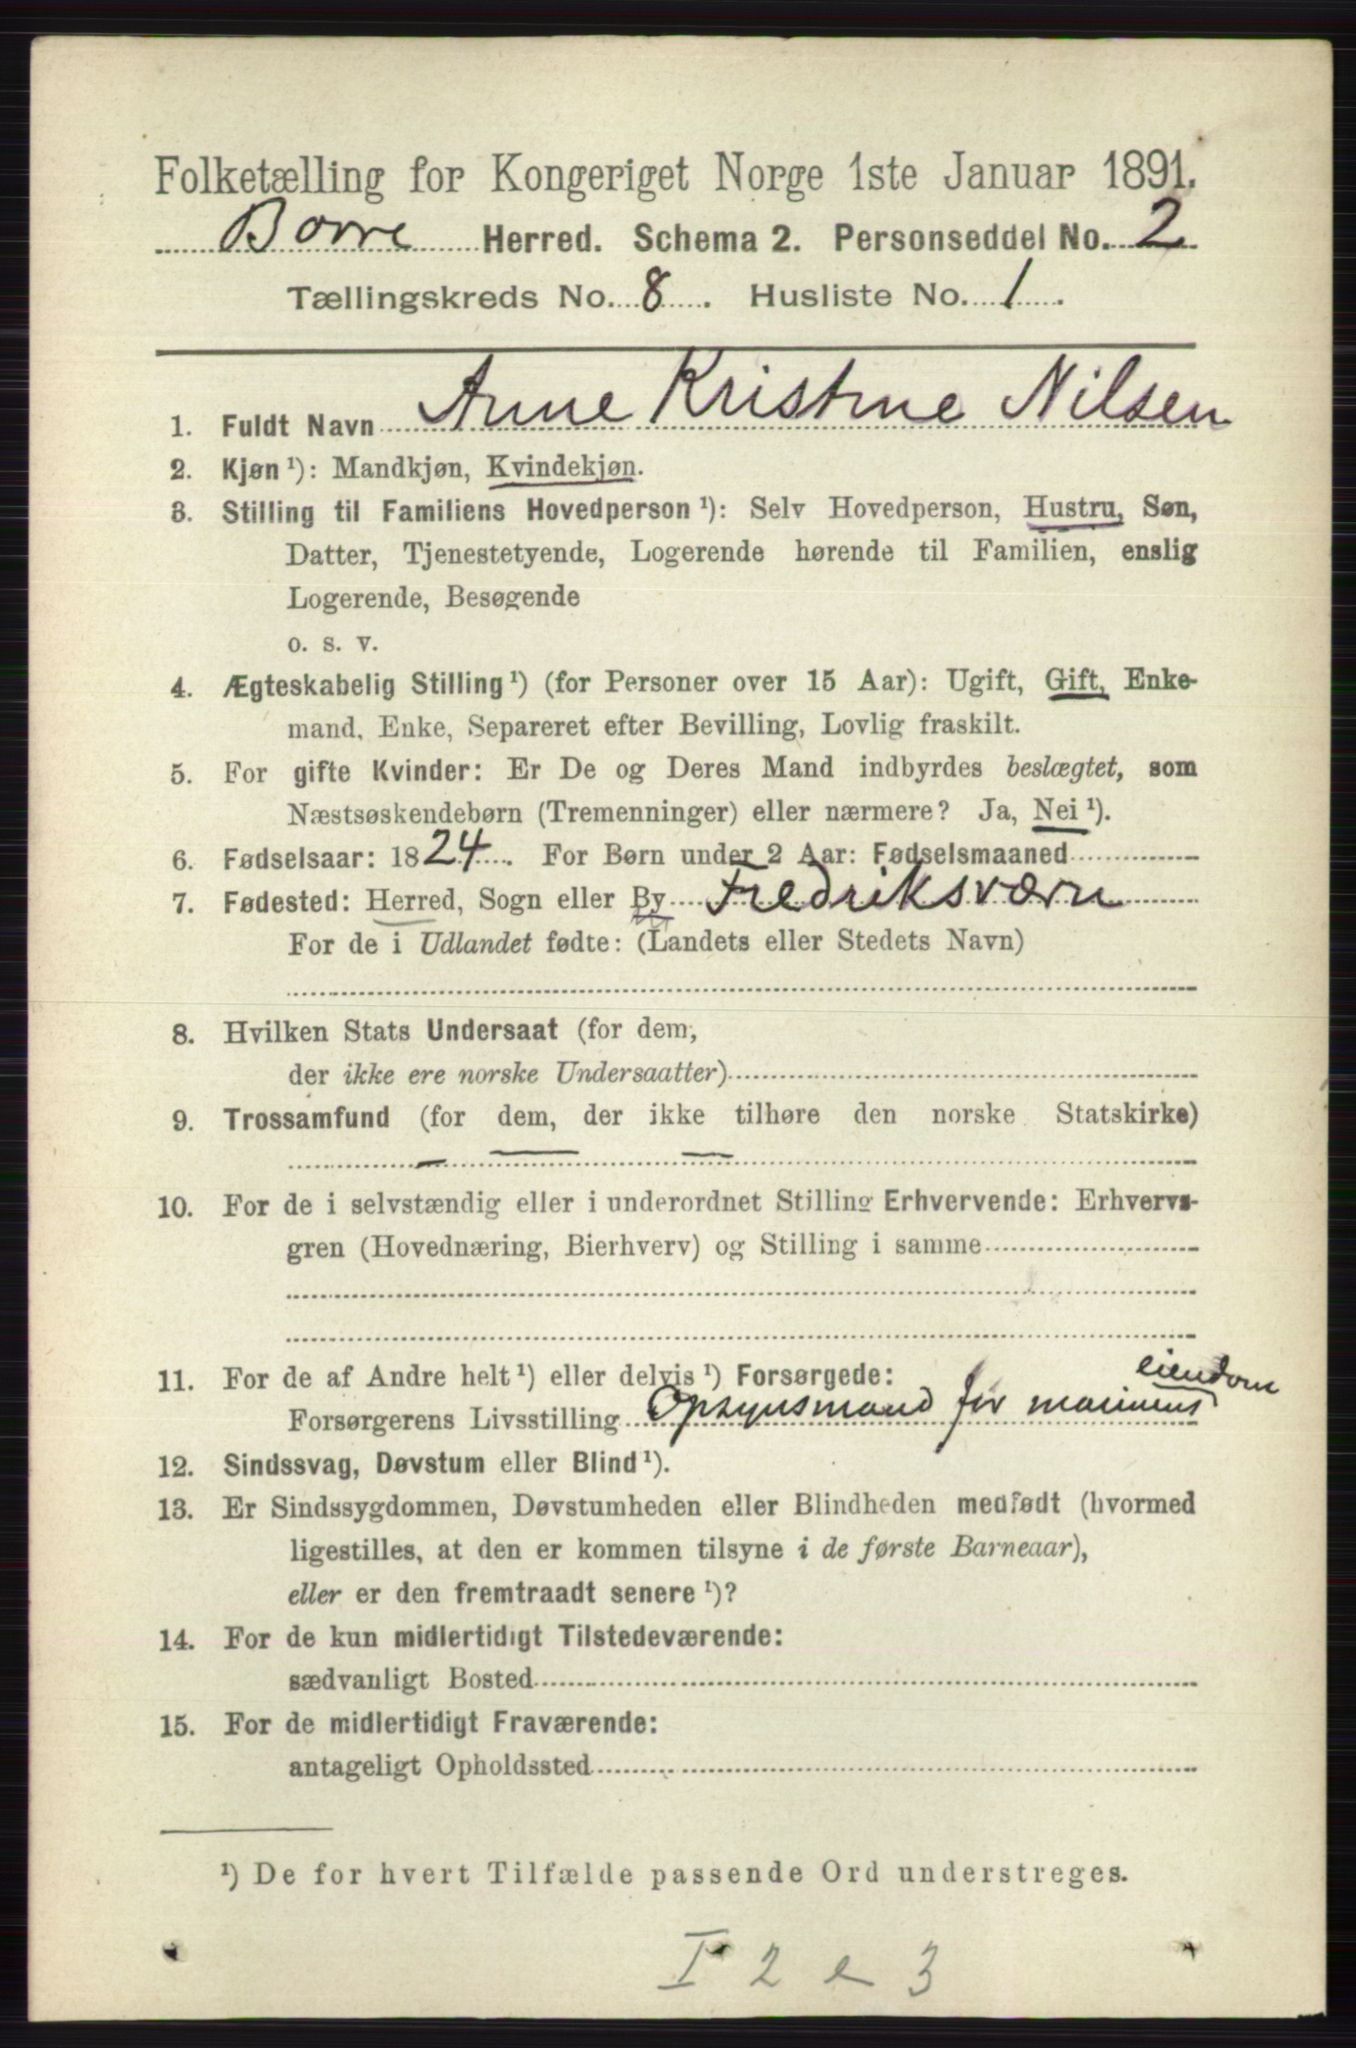 Folketælling for Kongeriget Norge 1ste Januar 1891.
Borre Herred. Schema 2. Personseddel No. 2
Tællingskreds No. 8. Husliste No. 1.
1. Fuldt Navn Anne Kristine Nilsen
2. Kjøn ¹): Mandkjøn, Kvindekjøn.
3. Stilling til Familiens Hovedperson ¹): Selv Hovedperson, Hustru, Søn,
Datter, Tjenestetyende, Logerende hørende til Familien, enslig
Logerende, Besøgende
o. s. v.
4. Ægteskabelig Stilling ¹) (for Personer over 15 Aar): Ugift, Gift, Enke-
mand, Enke, Separeret efter Bevilling, Lovlig fraskilt.
5. For gifte Kvinder: Er De og Deres Mand indbyrdes beslægtet, som
Næstsøskendebørn (Tremenninger) eller nærmere? Ja, Nei ¹).
6. Fødselsaar: 1824. For Børn under 2 Aar: Fødselsmaaned
7. Fødested: Herred, Sogn eller By Fredriksværn
For de i Udlandet fødte: (Landets eller Stedets Navn)
8. Hvilken Stats Undersaat (for dem,
der ikke ere norske Undersaatter)
9. Trossamfund (for dem, der ikke tilhøre den norske Statskirke)
10. For de i selvstændig eller i underordnet Stilling Erhvervende: Erhvervs-
gren (Hovednæring, Bierhverv) og Stilling i samme
11. For de af Andre helt ¹) eller delvis ¹) Forsørgede: eiendom
Forsørgerens Livsstilling Opsynsmand for marinens
12. Sindssvag, Døvstum eller Blind ¹).
13. Er Sindssygdommen, Døvstumheden eller Blindheden medfødt (hvormed
ligestilles, at den er kommen tilsyne i de første Barneaar),
eller er den fremtraadt senere ¹)?
14. For de kun midlertidigt Tilstedeværende:
sædvanligt Bosted
15. For de midlertidigt Fraværende:
antageligt Opholdssted
¹) De for hvert Tilfælde passende Ord understreges.
I 2 e 3